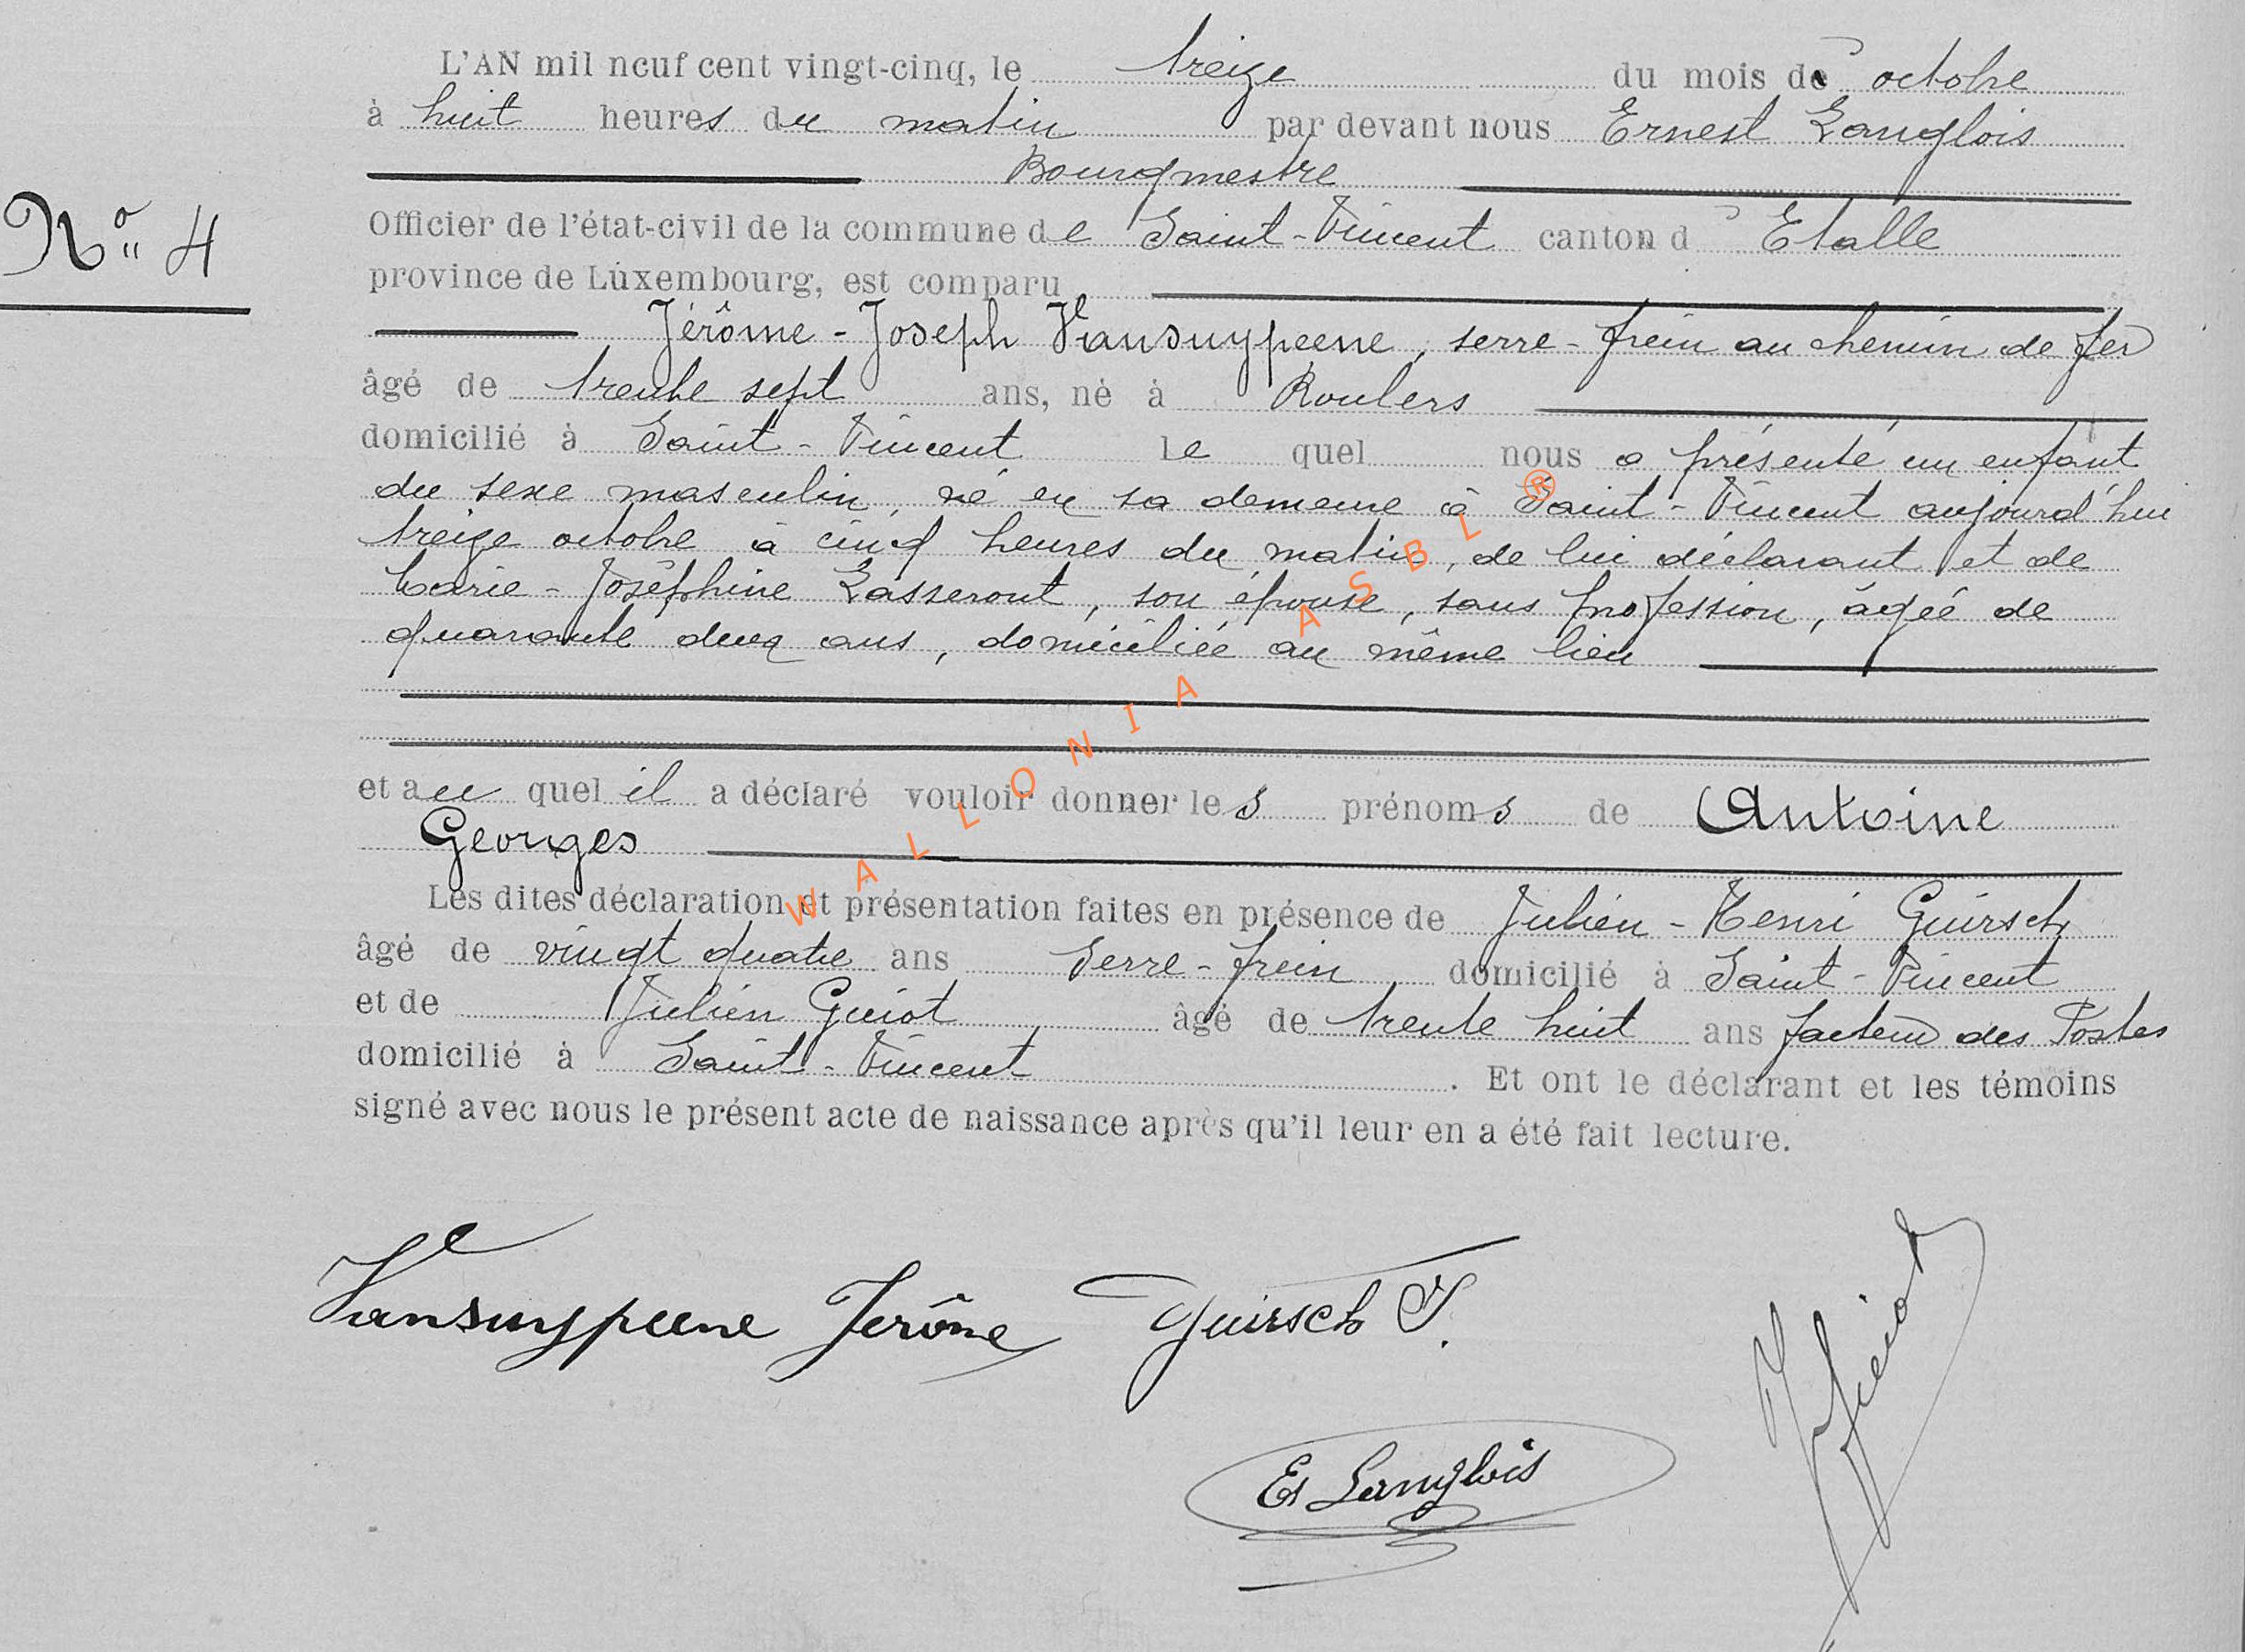 L'AN mil neuf cent vingt-cinq, le treize du mois de octobre
à huit heures du matin par devant nous Ernest Langlois
Bourgmestre
Officier de l'état-civil de la commune de Saint-Vincent canton d Etalle
N° 4
province de Luxembourg, est comparu
Jérôme-Joseph Vansuypeene, serre-frein au chemin de fer
âgé de trente sept ans, né à Roulers
domicilié à Saint-Vincent le quel nous a présenté un enfant
du sexe masculin, né en sa demeure à Saint-Vincent aujourd'hui
treize octobre à cinq heures du matin, de lui déclarant et de
Marie-Joséphine Lasseront, son épouse, sans profession, âgée de
quarante deux ans, domiciliée au même lieu
et au quel il a déclaré vouloir donner les prénoms de Antoine
Georges
Les dites déclaration et présentation faites en présence de Julien-Henri Guirsch
âgé de vingt quatre ans Serre-frein domicilié à Saint-Vincent
et de Julien Guiot âgé de trente huit ans facteur des Postes
domicilié à Saint-Vincent. Et ont le déclarant et les témoins
signé avec nous le présent acte de naissance après qu'il leur en a été fait lecture.
Vansuypeene Jerôme Guirsch J.
J Guiot
Es Langlois
WALLONIA ASBL ®